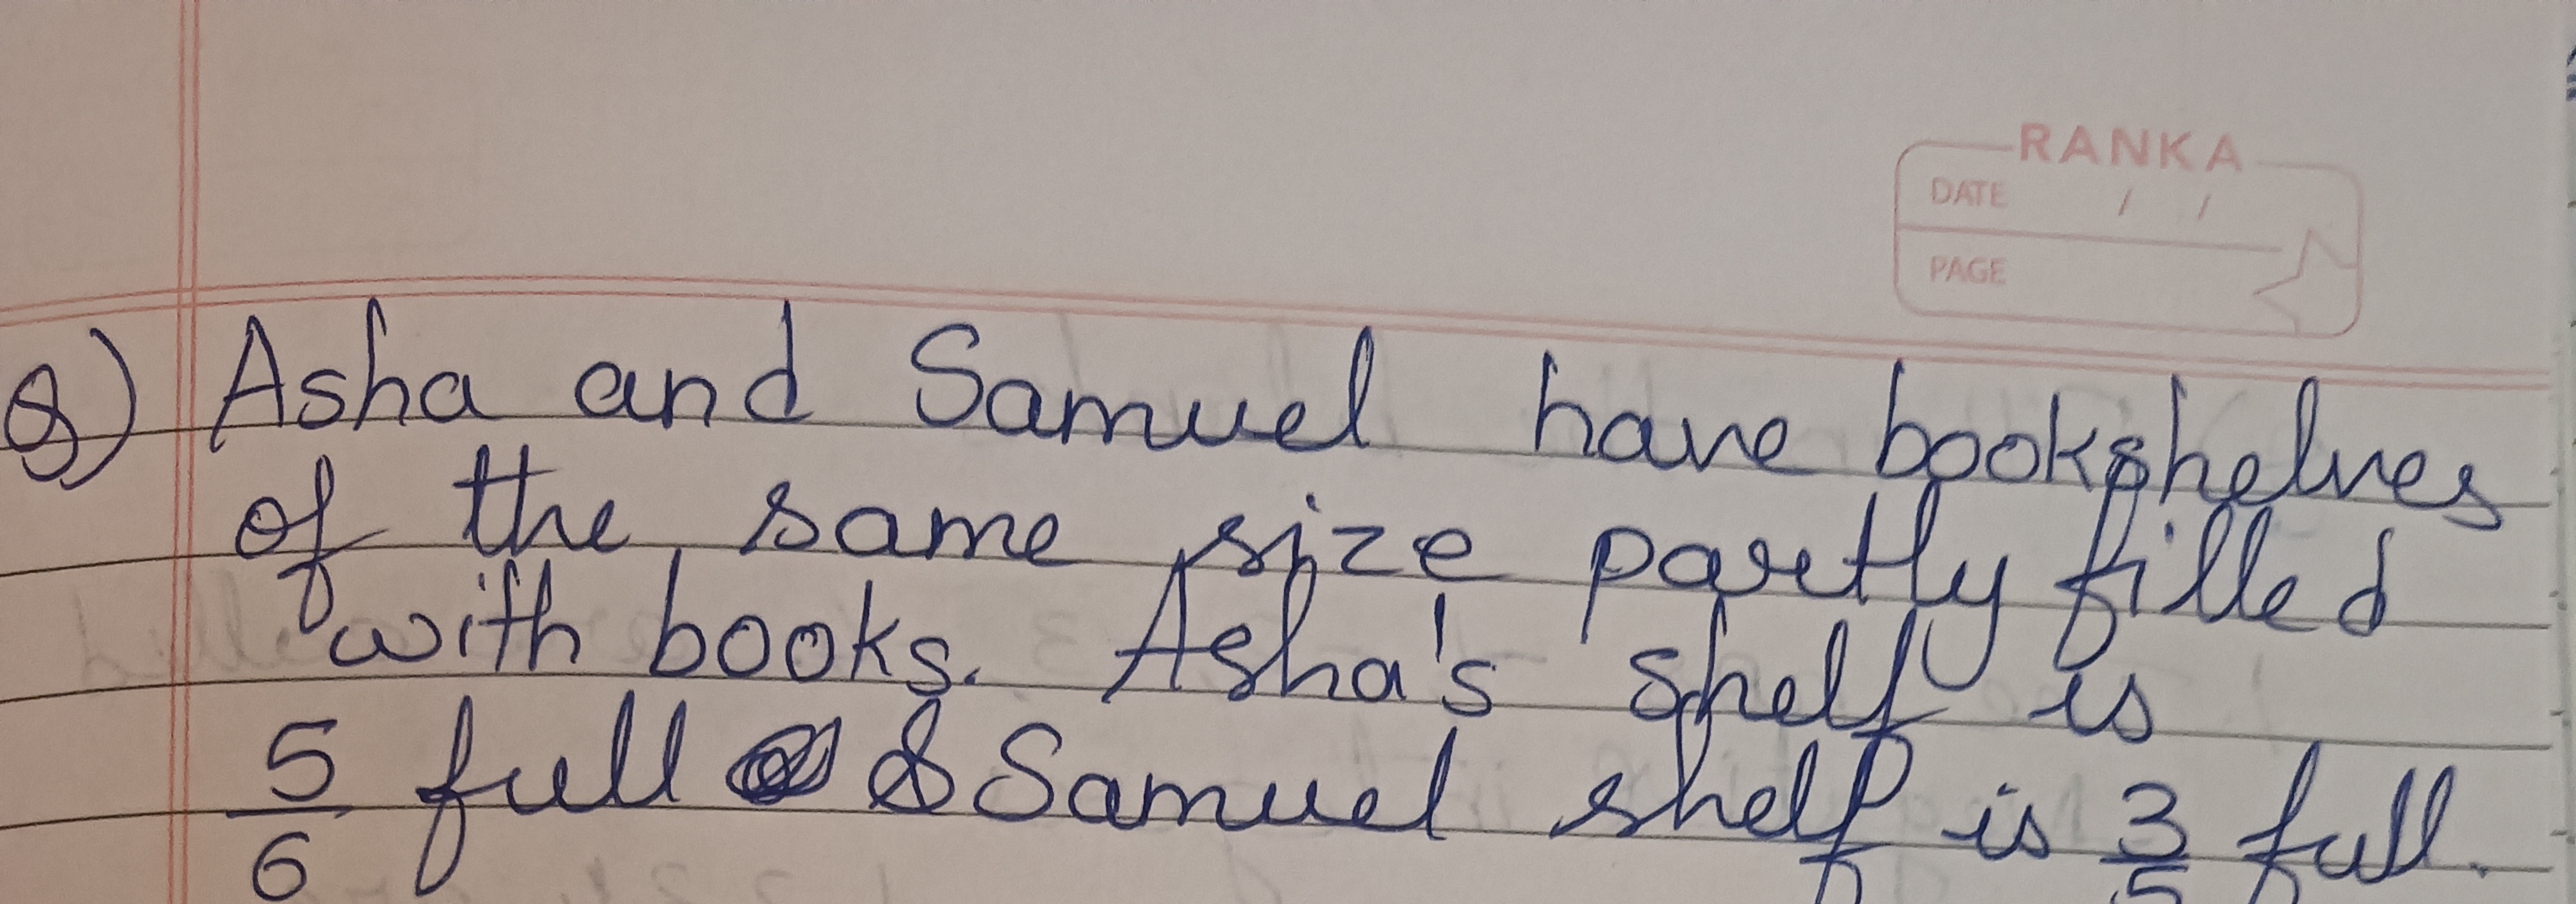 RANKA
DATE / /
PAGE
Q) Asha and Samuel have bookshelves
of the same size partly filled
with books. Asha's shelf is
5/6 full & Samuel shelf is 3/5 full.